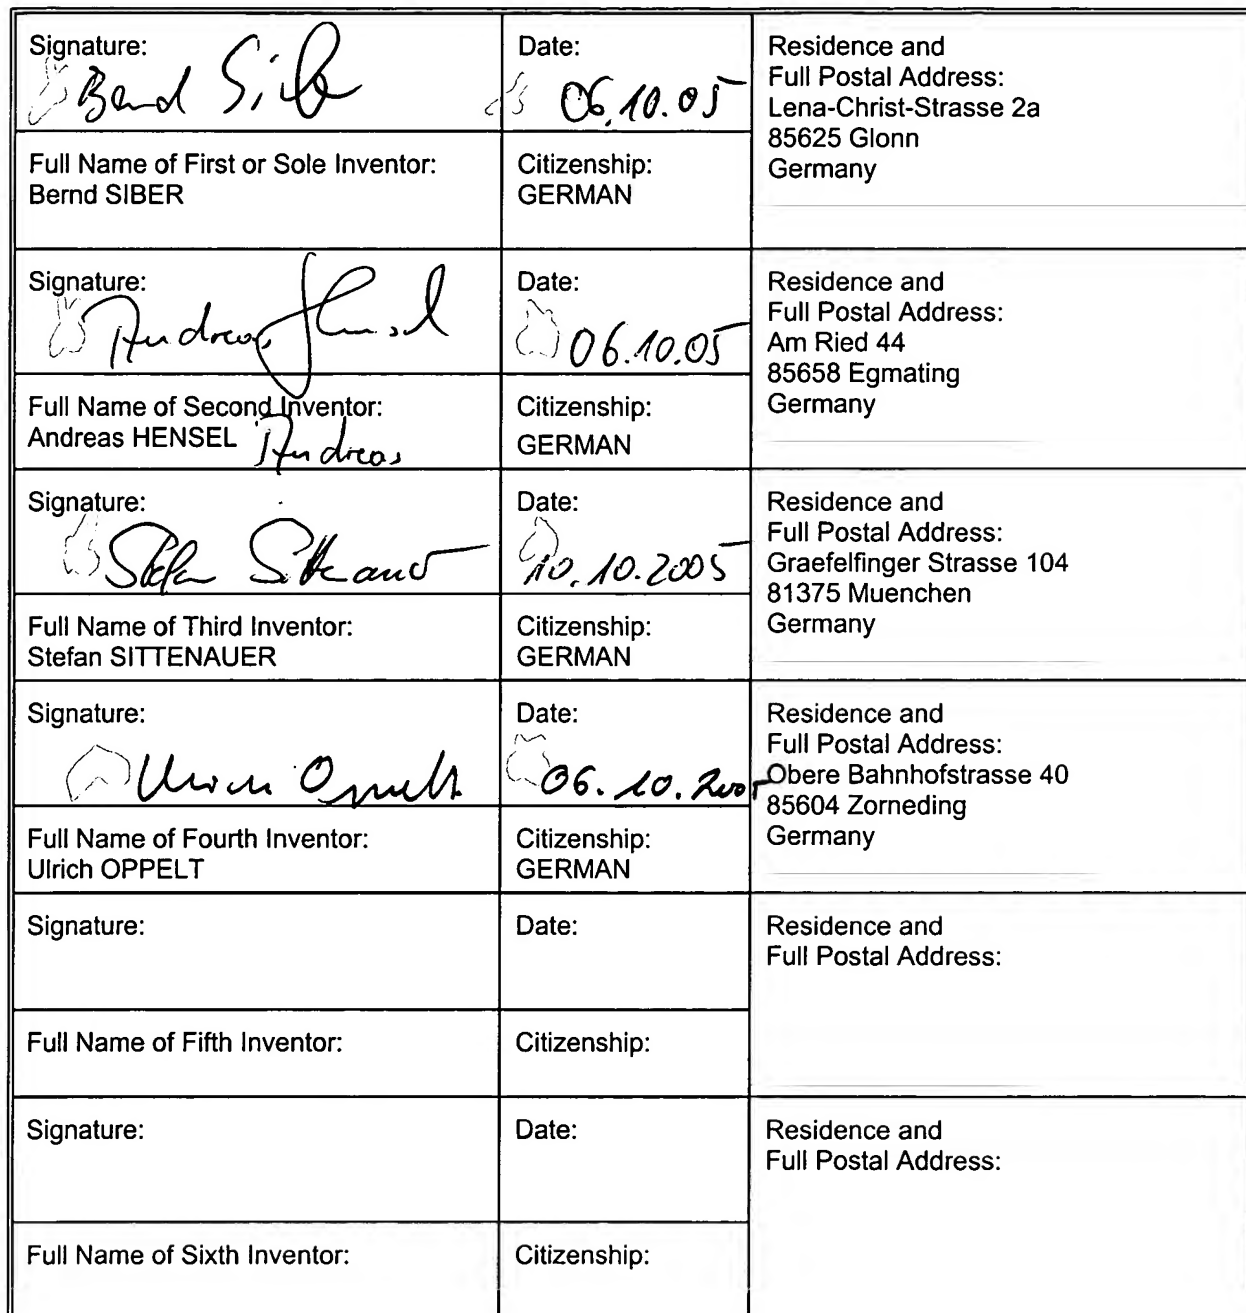 Signature:
Bernd Siber
Date:
06.10.05
Residence and
Full Postal Address:
Lena-Christ-Strasse 2a
85625 Glonn
Germany
Full Name of First or Sole Inventor:
Bernd SIBER
Citizenship:
GERMAN
Signature:
Andreas Hensel
Date:
06.10.05
Residence and
Full Postal Address:
Am Ried 44
85658 Egmating
Germany
Full Name of Second Inventor:
Andreas HENSEL Andreas
Citizenship:
GERMAN
Signature:
Stefan Sittenauer
Date:
10.10.2005
Residence and
Full Postal Address:
Graefelfinger Strasse 104
81375 Muenchen
Germany
Full Name of Third Inventor:
Stefan SITTENAUER
Citizenship:
GERMAN
Signature:
Ulrich Oppelt
Date:
06.10.2005
Residence and
Full Postal Address:
Obere Bahnhofstrasse 40
85604 Zorneding
Germany
Full Name of Fourth Inventor:
Ulrich OPPELT
Citizenship:
GERMAN
Signature:
Date:
Residence and
Full Postal Address:
Full Name of Fifth Inventor:
Citizenship:
Signature:
Date:
Residence and
Full Postal Address:
Full Name of Sixth Inventor:
Citizenship: